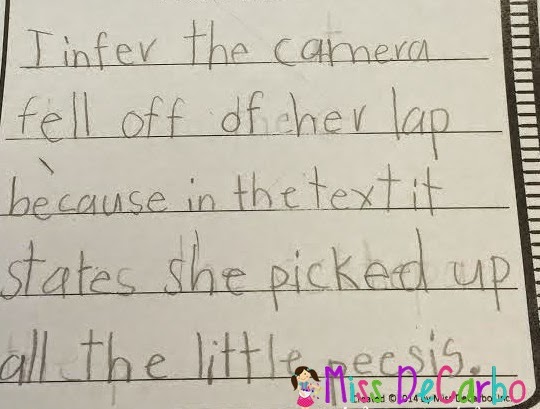 I infer the camera
fell off of her lap
because in the text it
states she picked up
all the little peesis.
Miss DeCarbo
Created © 2014 by Miss DeCarbo, Inc.